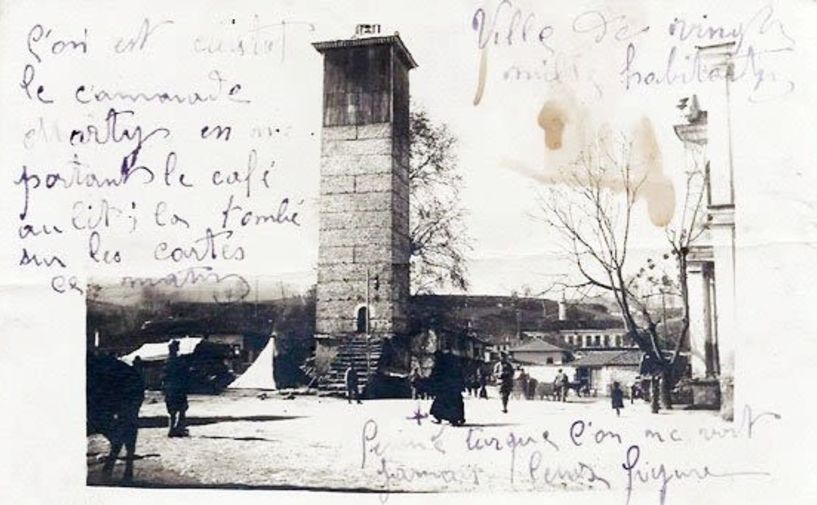 l'on est
le camarade
Martys en me
portant le café
au lit; la tombé
sur les cartes
ce matin
Ville de vingt
mille habitants
femme turque l'on ne voit
jamais leurs figure